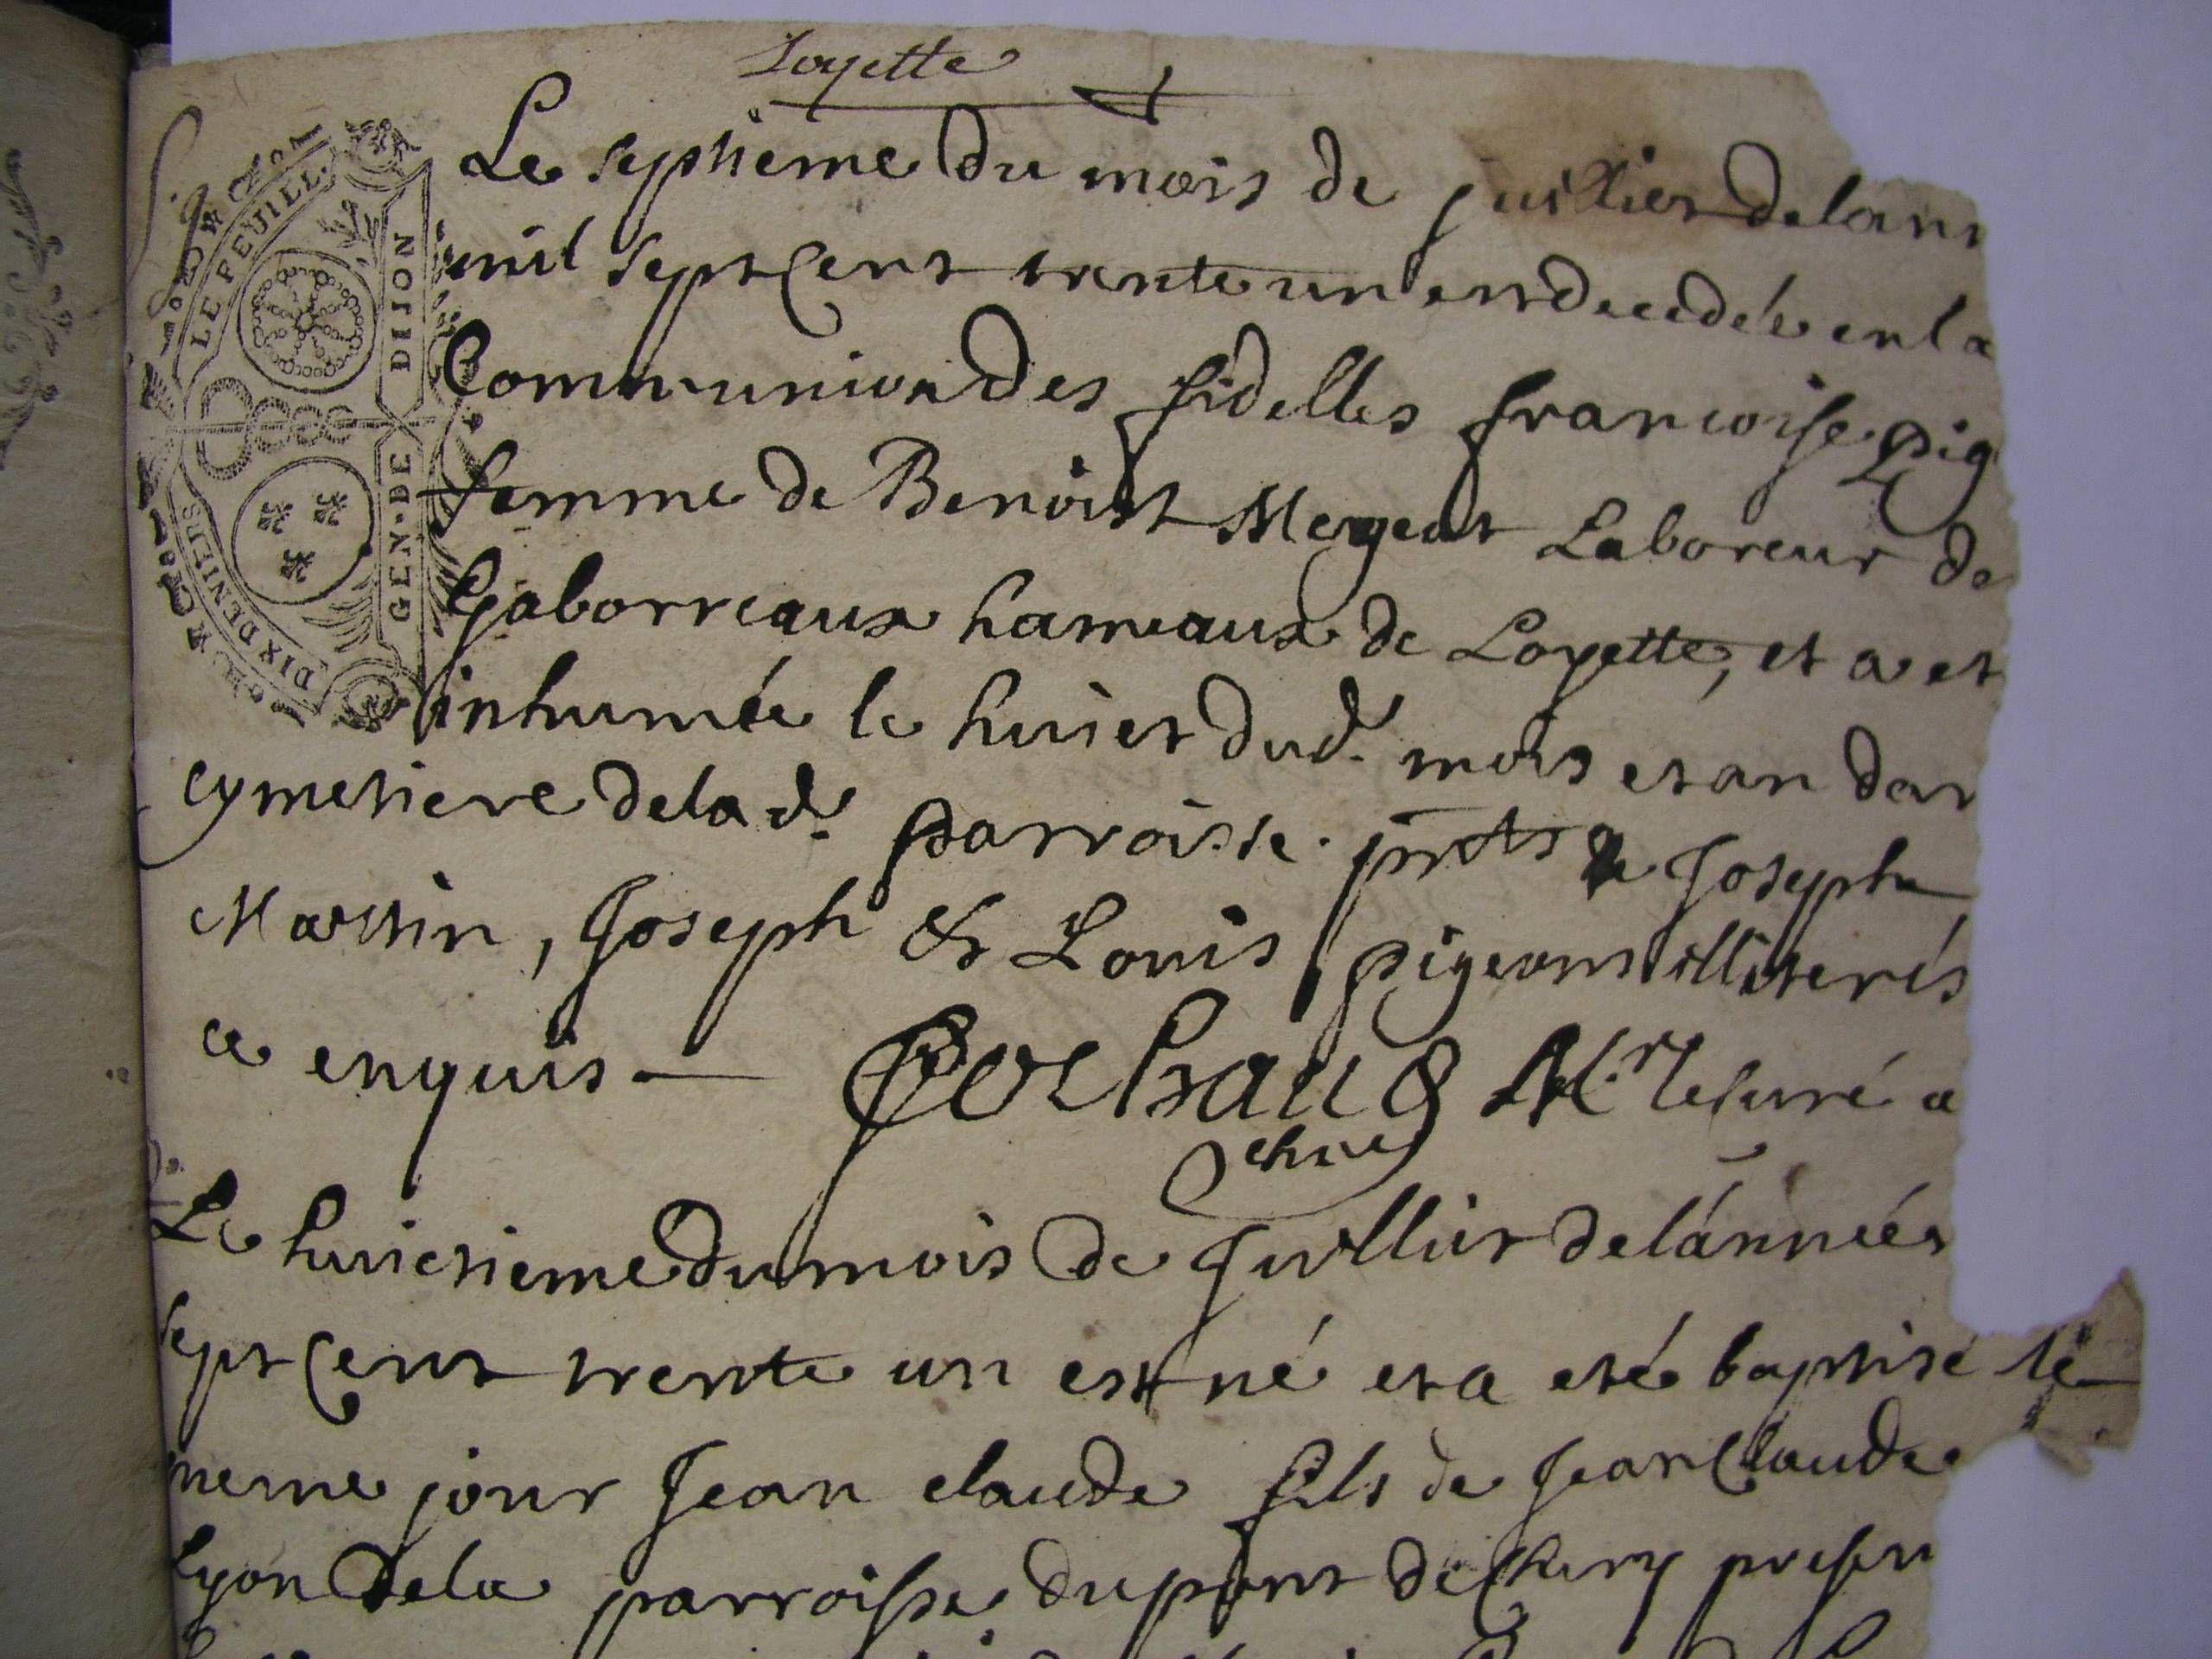 Loyette
LE FEUILL.
DIX DENIERS
GEN. DE DIJON
Le septieme du mois de juillier de lann
mil sept Cent trente un est decedée en la
Communion des fidelles francoise pig
femme de Benoist Mergeat Laboreur de
Gaborreaux hameaux de Loyette, et a et
inhumée le huiet dud. mois et an dan
cymetiere de la d. parroisse. prts Joseph
Martin, Joseph & Louis pigeons illiterés
ce enquis
Mr le Curé a
Le huictieme du mois de Juillier de lannées
sept Cent trente un est né et a eté baptisé le
meme jour Jean claude fils de Jean Claude
Lyon de la parroisse du pont de Chery presen